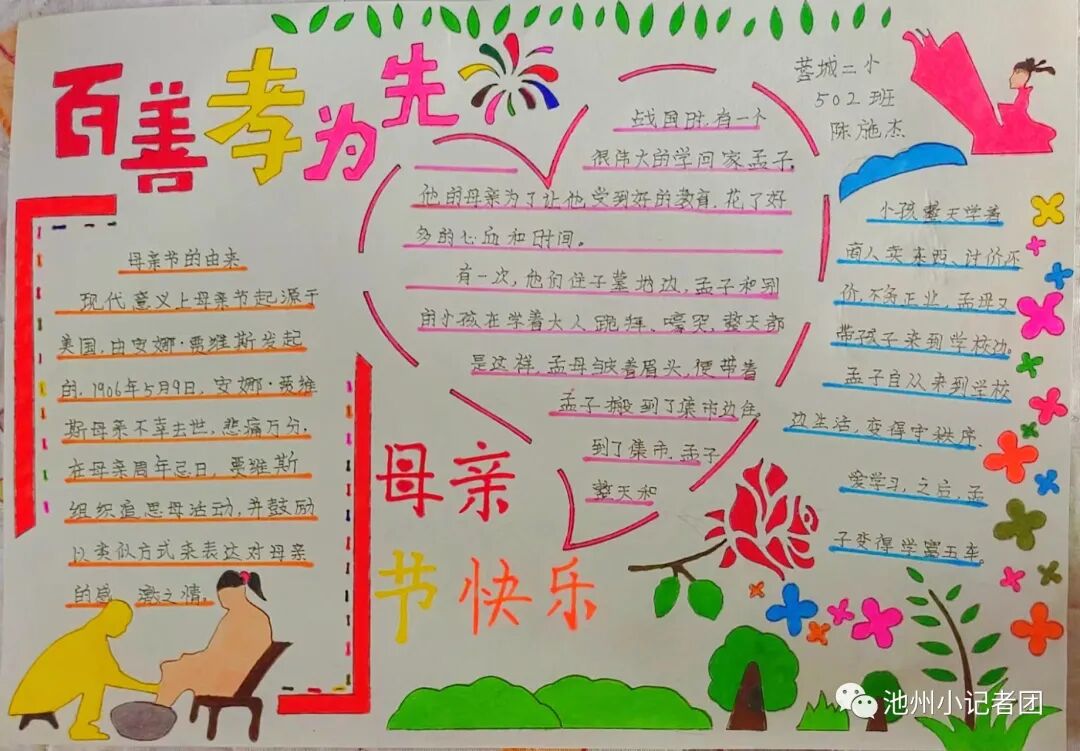 百善孝为先
蓉城二小
502班
陈施杰
母亲节的由来
现代意义上母亲节起源于
美国,由安娜·贾维斯发起
的,1906年5月9日,安娜·贾维
斯母亲不幸去世,悲痛万分.
在母亲周年忌日,贾维斯
组织追思母活动,并鼓励
以类似方式来表达对母亲
的感激之情。
战国时,有一个
很伟大的学问家孟子,
他的母亲为了让他受到好的教育,花了好
多的心血和时间。
有一次,他们住于墓地边,孟子和别
的小孩在学着大人跪拜、嚎哭,整天都
是这样,孟母皱着眉头,便带着
孟子搬到了集市边住。
到了集市,孟子
整天和
小孩整天学着
商人卖东西、讨价还
价,不务正业,孟母又
带孩子来到学校边。
孟子自从来到学校
边生活,变得守秩序、
爱学习,之后,孟
子变得学富五车。
母亲
节快乐
池州小记者团